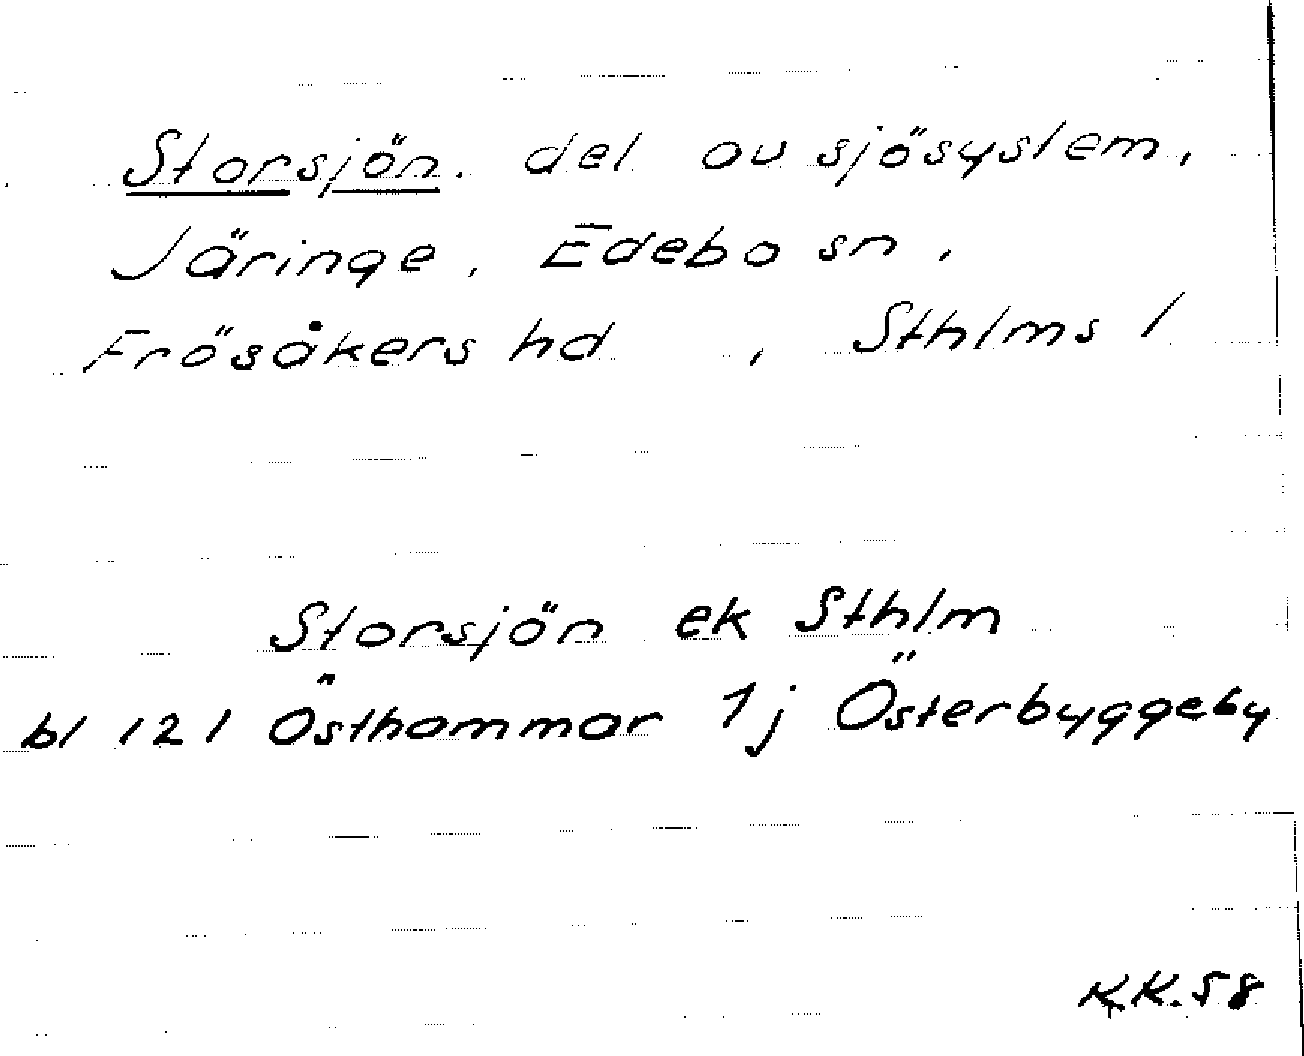 Storsjön. del av sjösystem,
Järinge, Edebo sn,
Frösåkers hd, Sthlms l
Storsjön ek Sthlm
bl 121 Östhammar 1j Österbyggeby
KK. 58